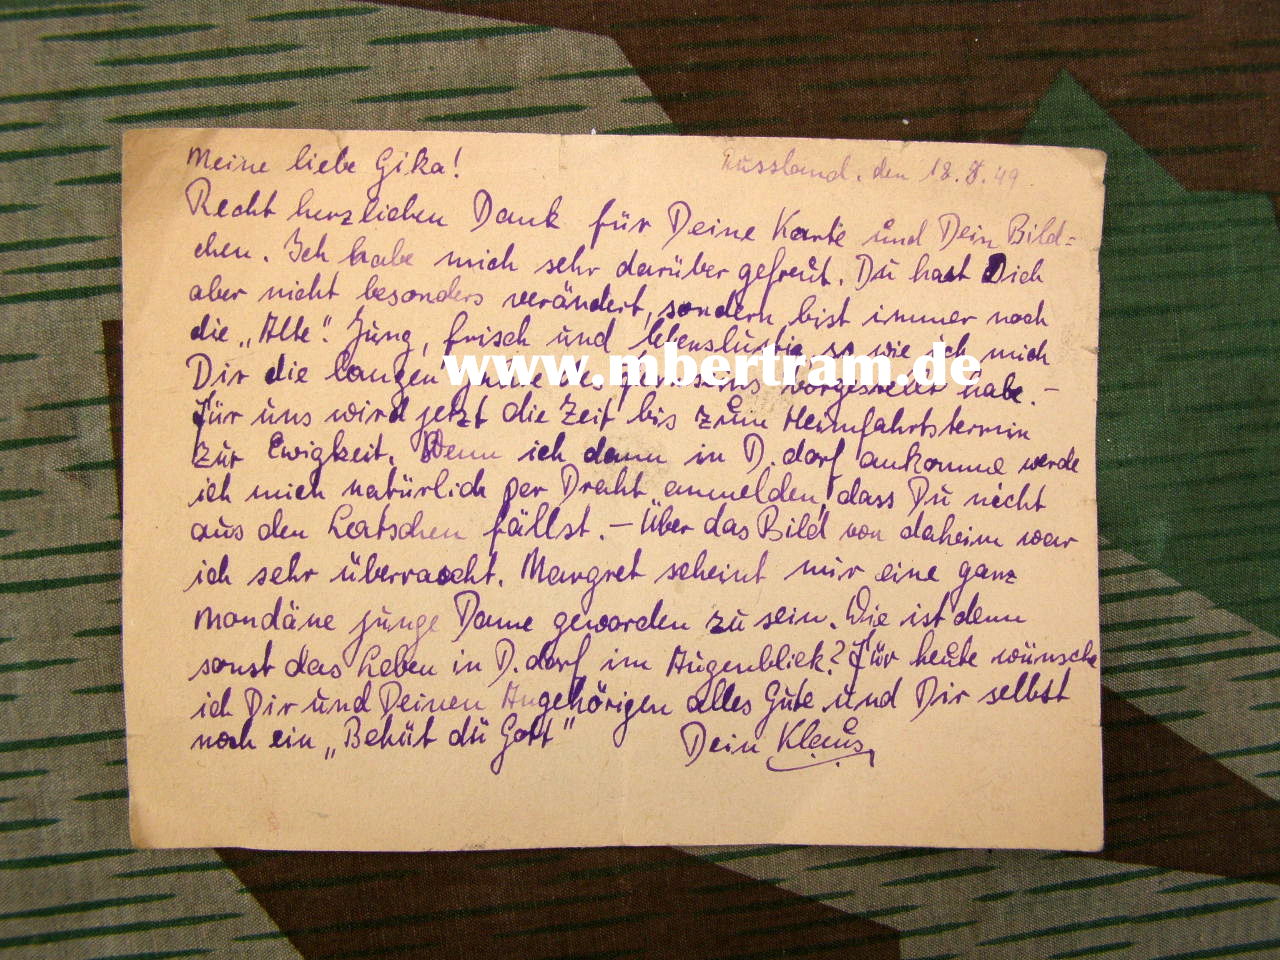 Meine liebe Gika! Russland, den 18.8.49
Recht herzlichen Dank für Deine Karte und Dein Bild=
chen. Ich habe mich sehr darüber gefreut. Du hast Dich
aber nicht besonders verändert, sondern bist immer noch
die „Alte“. Jung, frisch und lebenslustig so wie ich mich
Dir die langen Jahre des vorgestellt habe. –
www.mbertram.de
Für uns wird jetzt die Zeit bis zum Heimfahrtstermin
zur Ewigkeit. Wenn ich dann in D.dorf ankomme werde
ich mich natürlich per Draht anmelden, dass Du nicht
aus den Latschen fällst. – Über das Bild von daheim war
ich sehr überrascht. Margret scheint mir eine ganz
mondäne junge Dame geworden zu sein. Wie ist denn
sonst das Leben in D.dorf im Augenblick? Für heute wünsche
ich Dir und Deinen Angehörigen alles Gute und Dir selbst
noch ein „Behüt dü Gott“ Dein Klaus